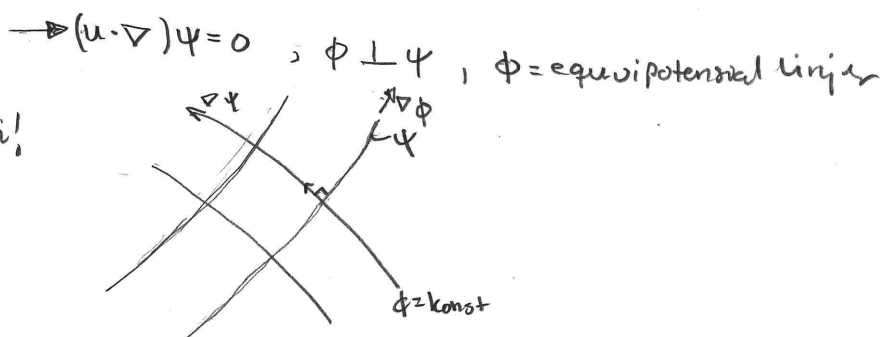 → (u·∇)ψ = 0 , ϕ ⊥ ψ , ϕ = equvipotensial linjer
∇ψ
∇ϕ
ψ
i!
ϕ = konst